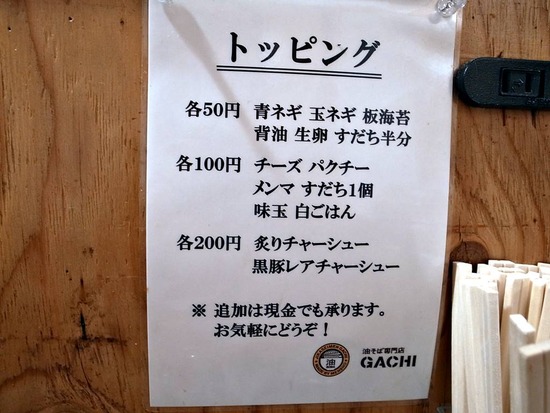 トッピング
各50円 青ネギ 玉ネギ 板海苔
背油 生卵 すだち半分
各100円 チーズ パクチー
メンマ すだち1個
味玉 白ごはん
各200円 炙りチャーシュー
黒豚レアチャーシュー
※ 追加は現金でも承ります。
お気軽にどうぞ！
油
油そば専門店
GACHI